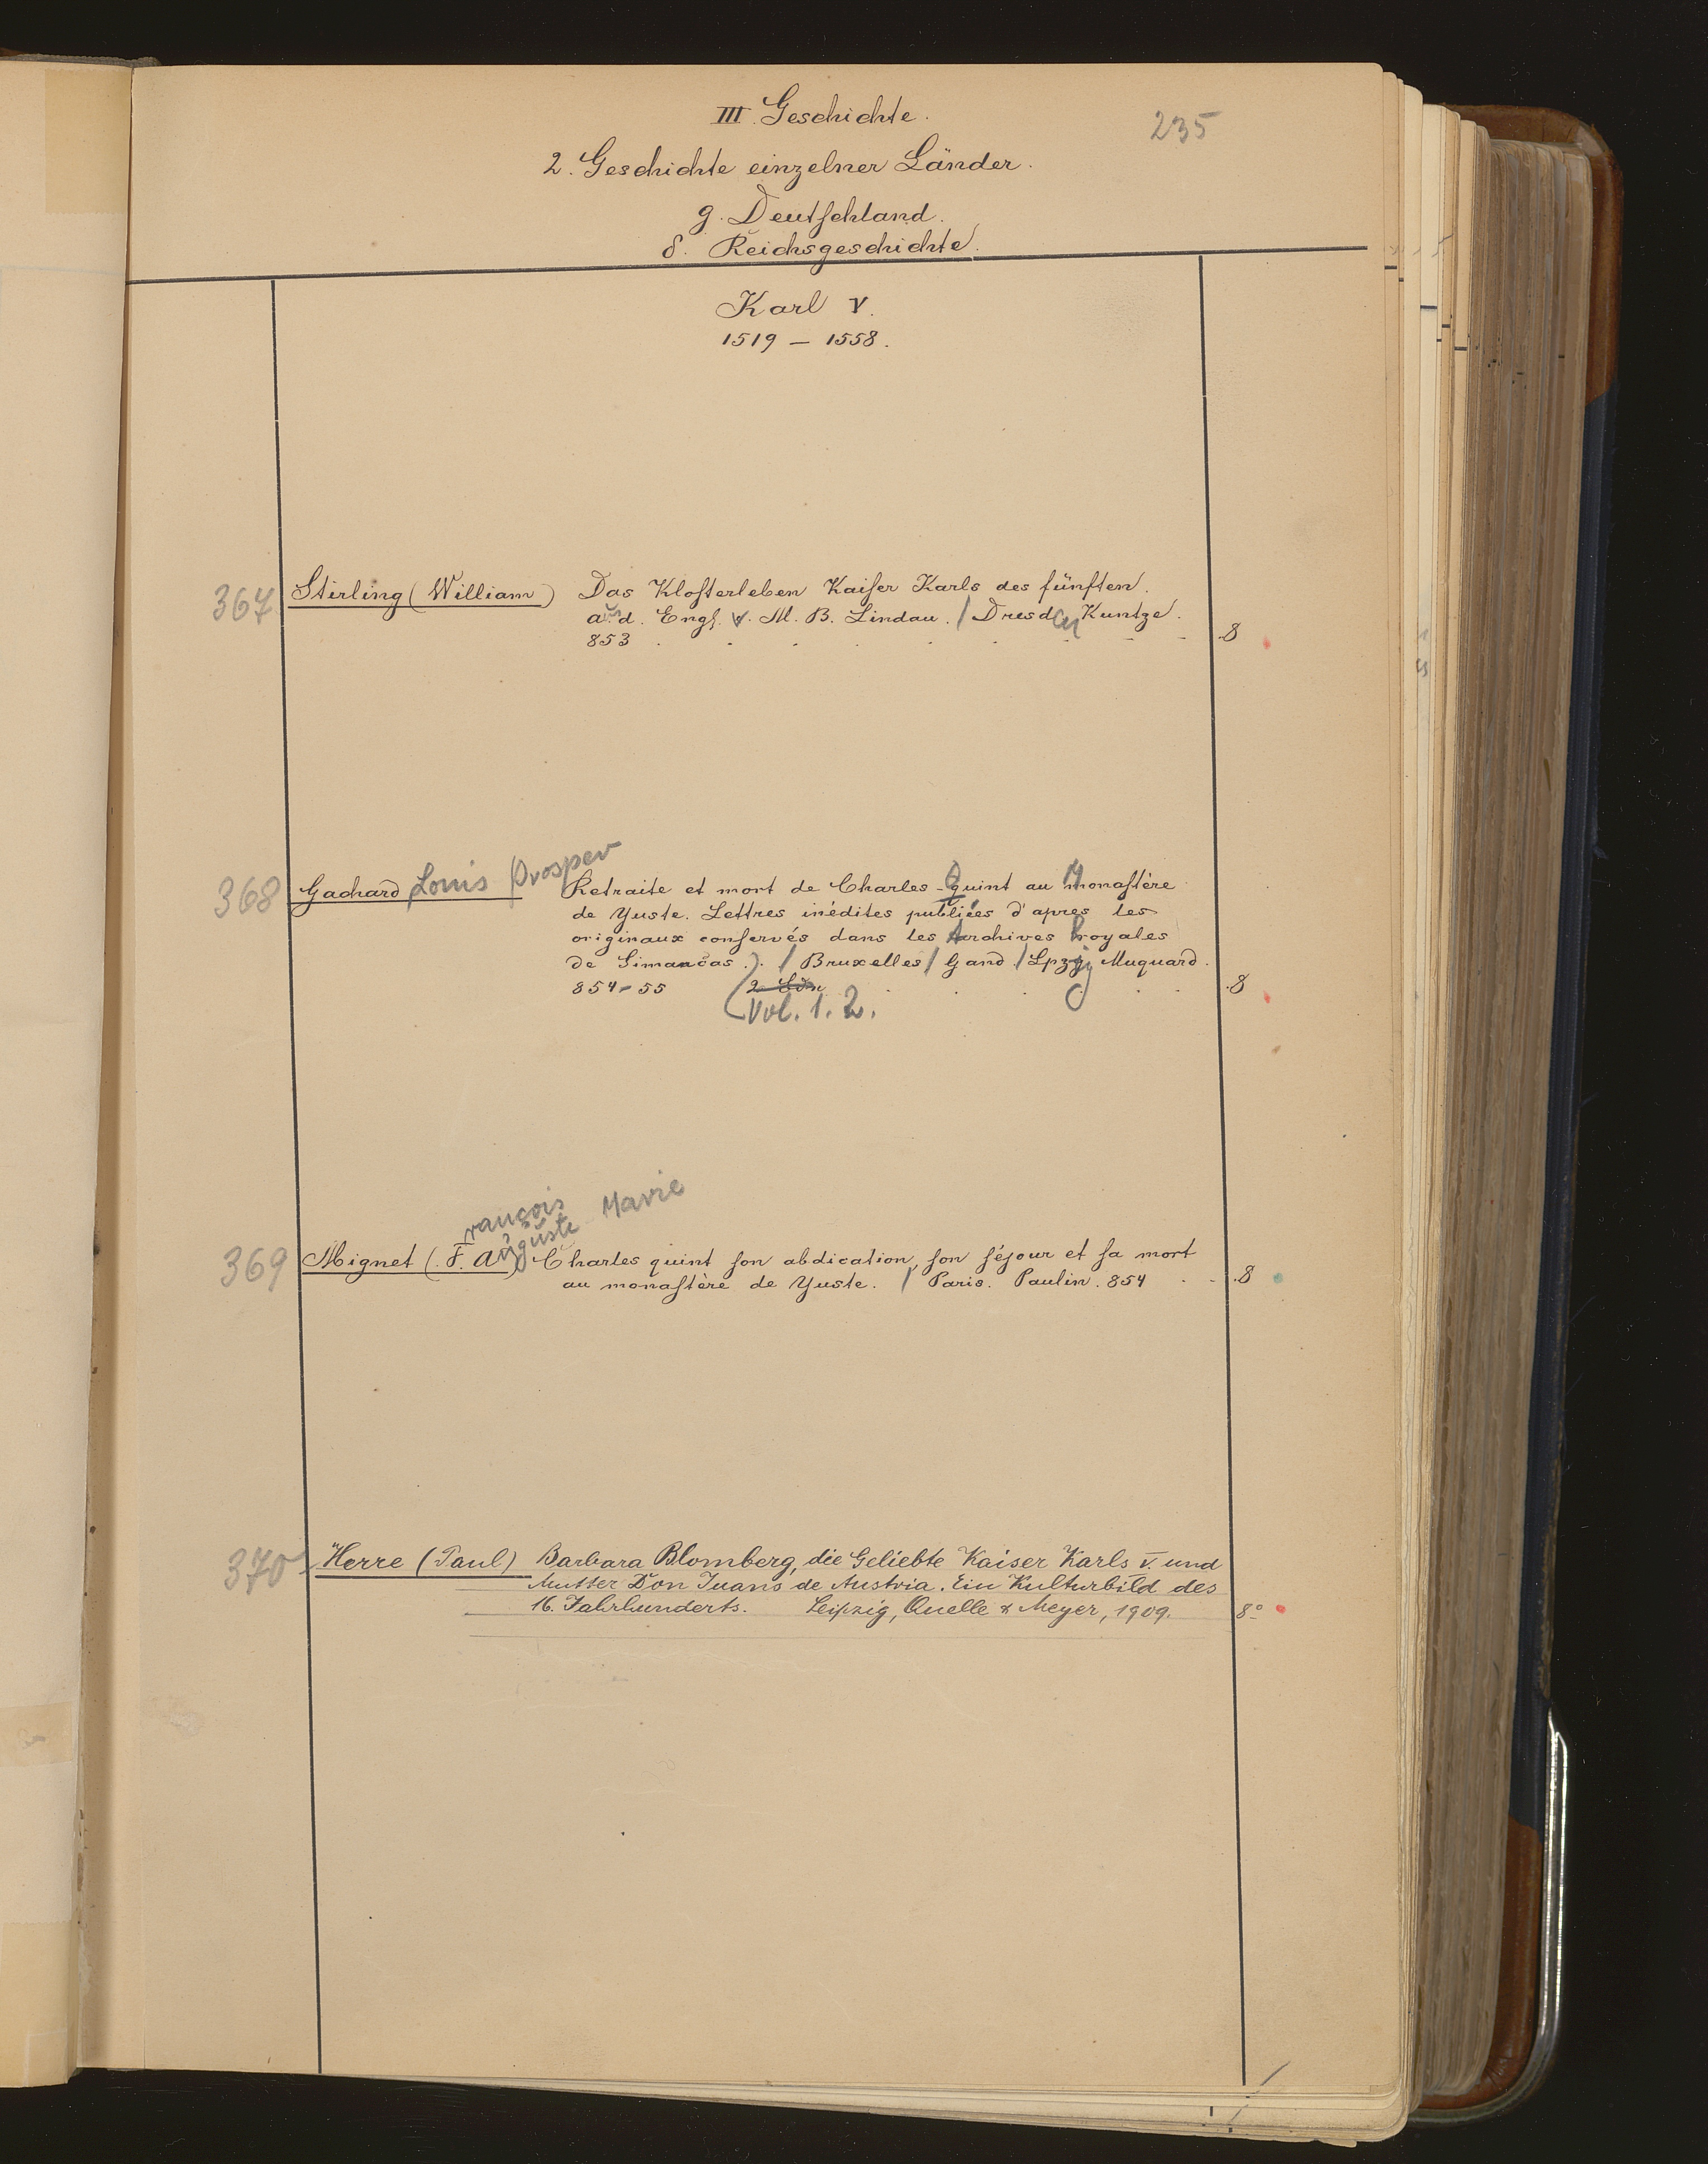 III. Geschichte.
235
2. Geschichte einzelner Länder.
g. Deutschland.
δ. Reichsgeschichte.
Karl V.
1519 – 1558.
367 Stirling (William) Das Klosterleben Kaiser Karls des fünften.
a. d. Engl. v. M. B. Lindau. / Dresden Kuntze.
853 . . . . . . . . . 8
368 Gachard, Louis Prosper Retraite et mort de Charles-Quint au Monastère
de Yuste. Lettres inédites publiées d'apres les
originaux conservés dans les Archives Royales
de Simancas. ). / Bruxelles / Gand / Lpzg Muquard.
854-55 2 Bdn . . . . . 8
(Vol. 1. 2.
rançois
Marie
uguste
369 Mignet (F. A.) Charles quint son abdication, son séjour et sa mort
au monastère de Yuste. / Paris. Paulin. 854 . . . 8
370 Herre (Paul) Barbara Blomberg, die Geliebte Kaiser Karls V. und
Mutter Don Juans de Austria. Ein Kulturbild des
16. Jahrhunderts. Leipzig, Quelle & Meyer, 1909. 8°